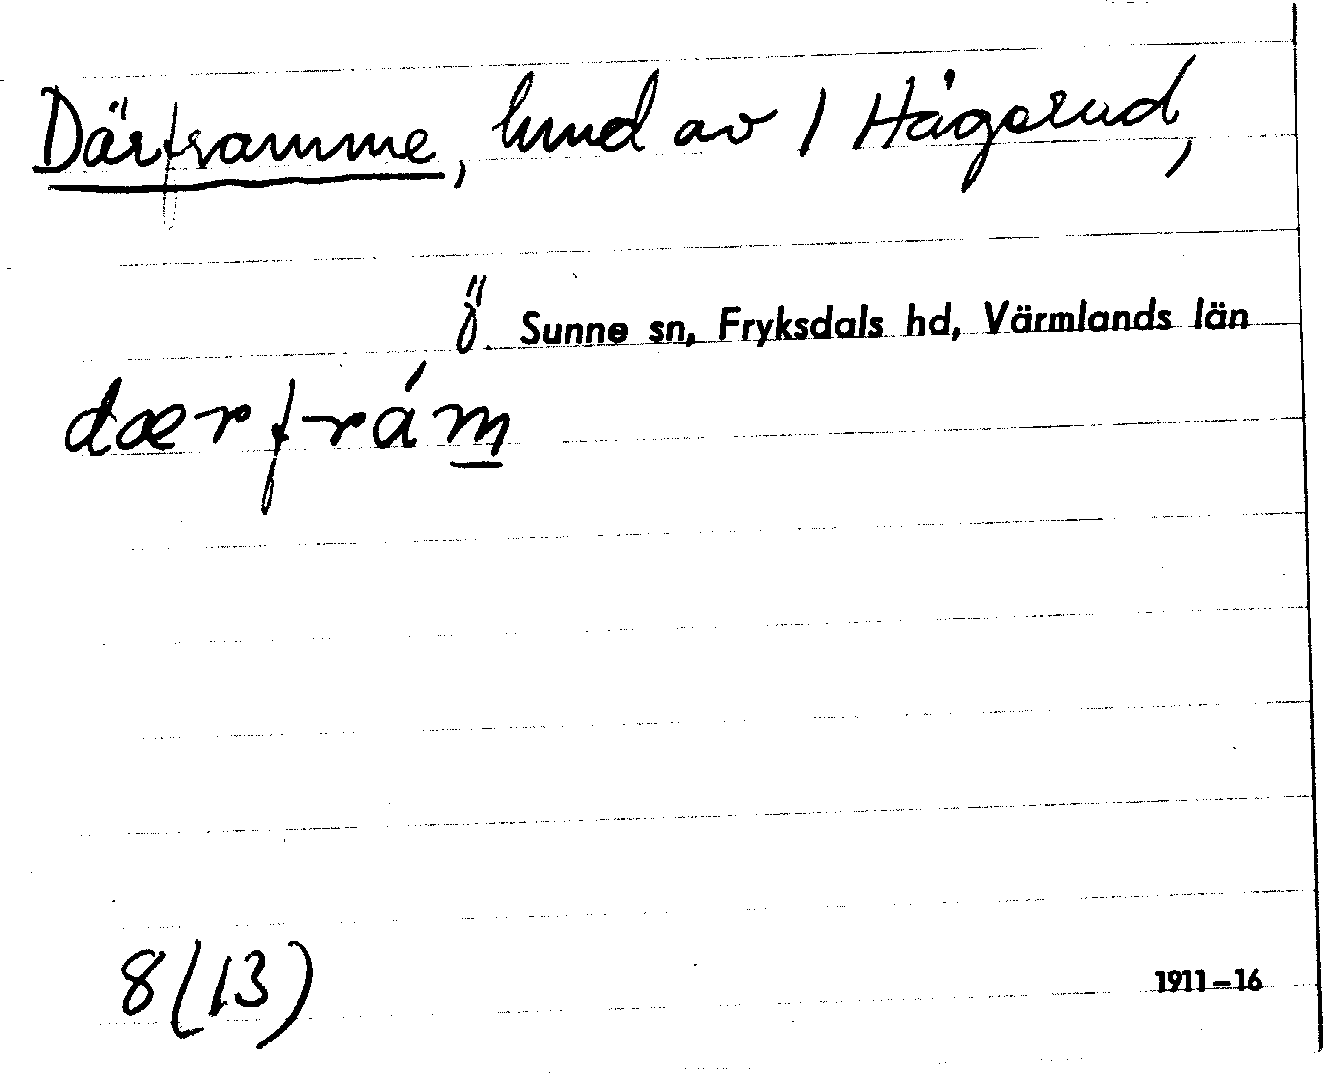 Därframme, lund av 1 Hågerud,
Ö. Sunne sn, Fryksdals hd, Värmlands län
dærfrám̲
8(13)
1911–16